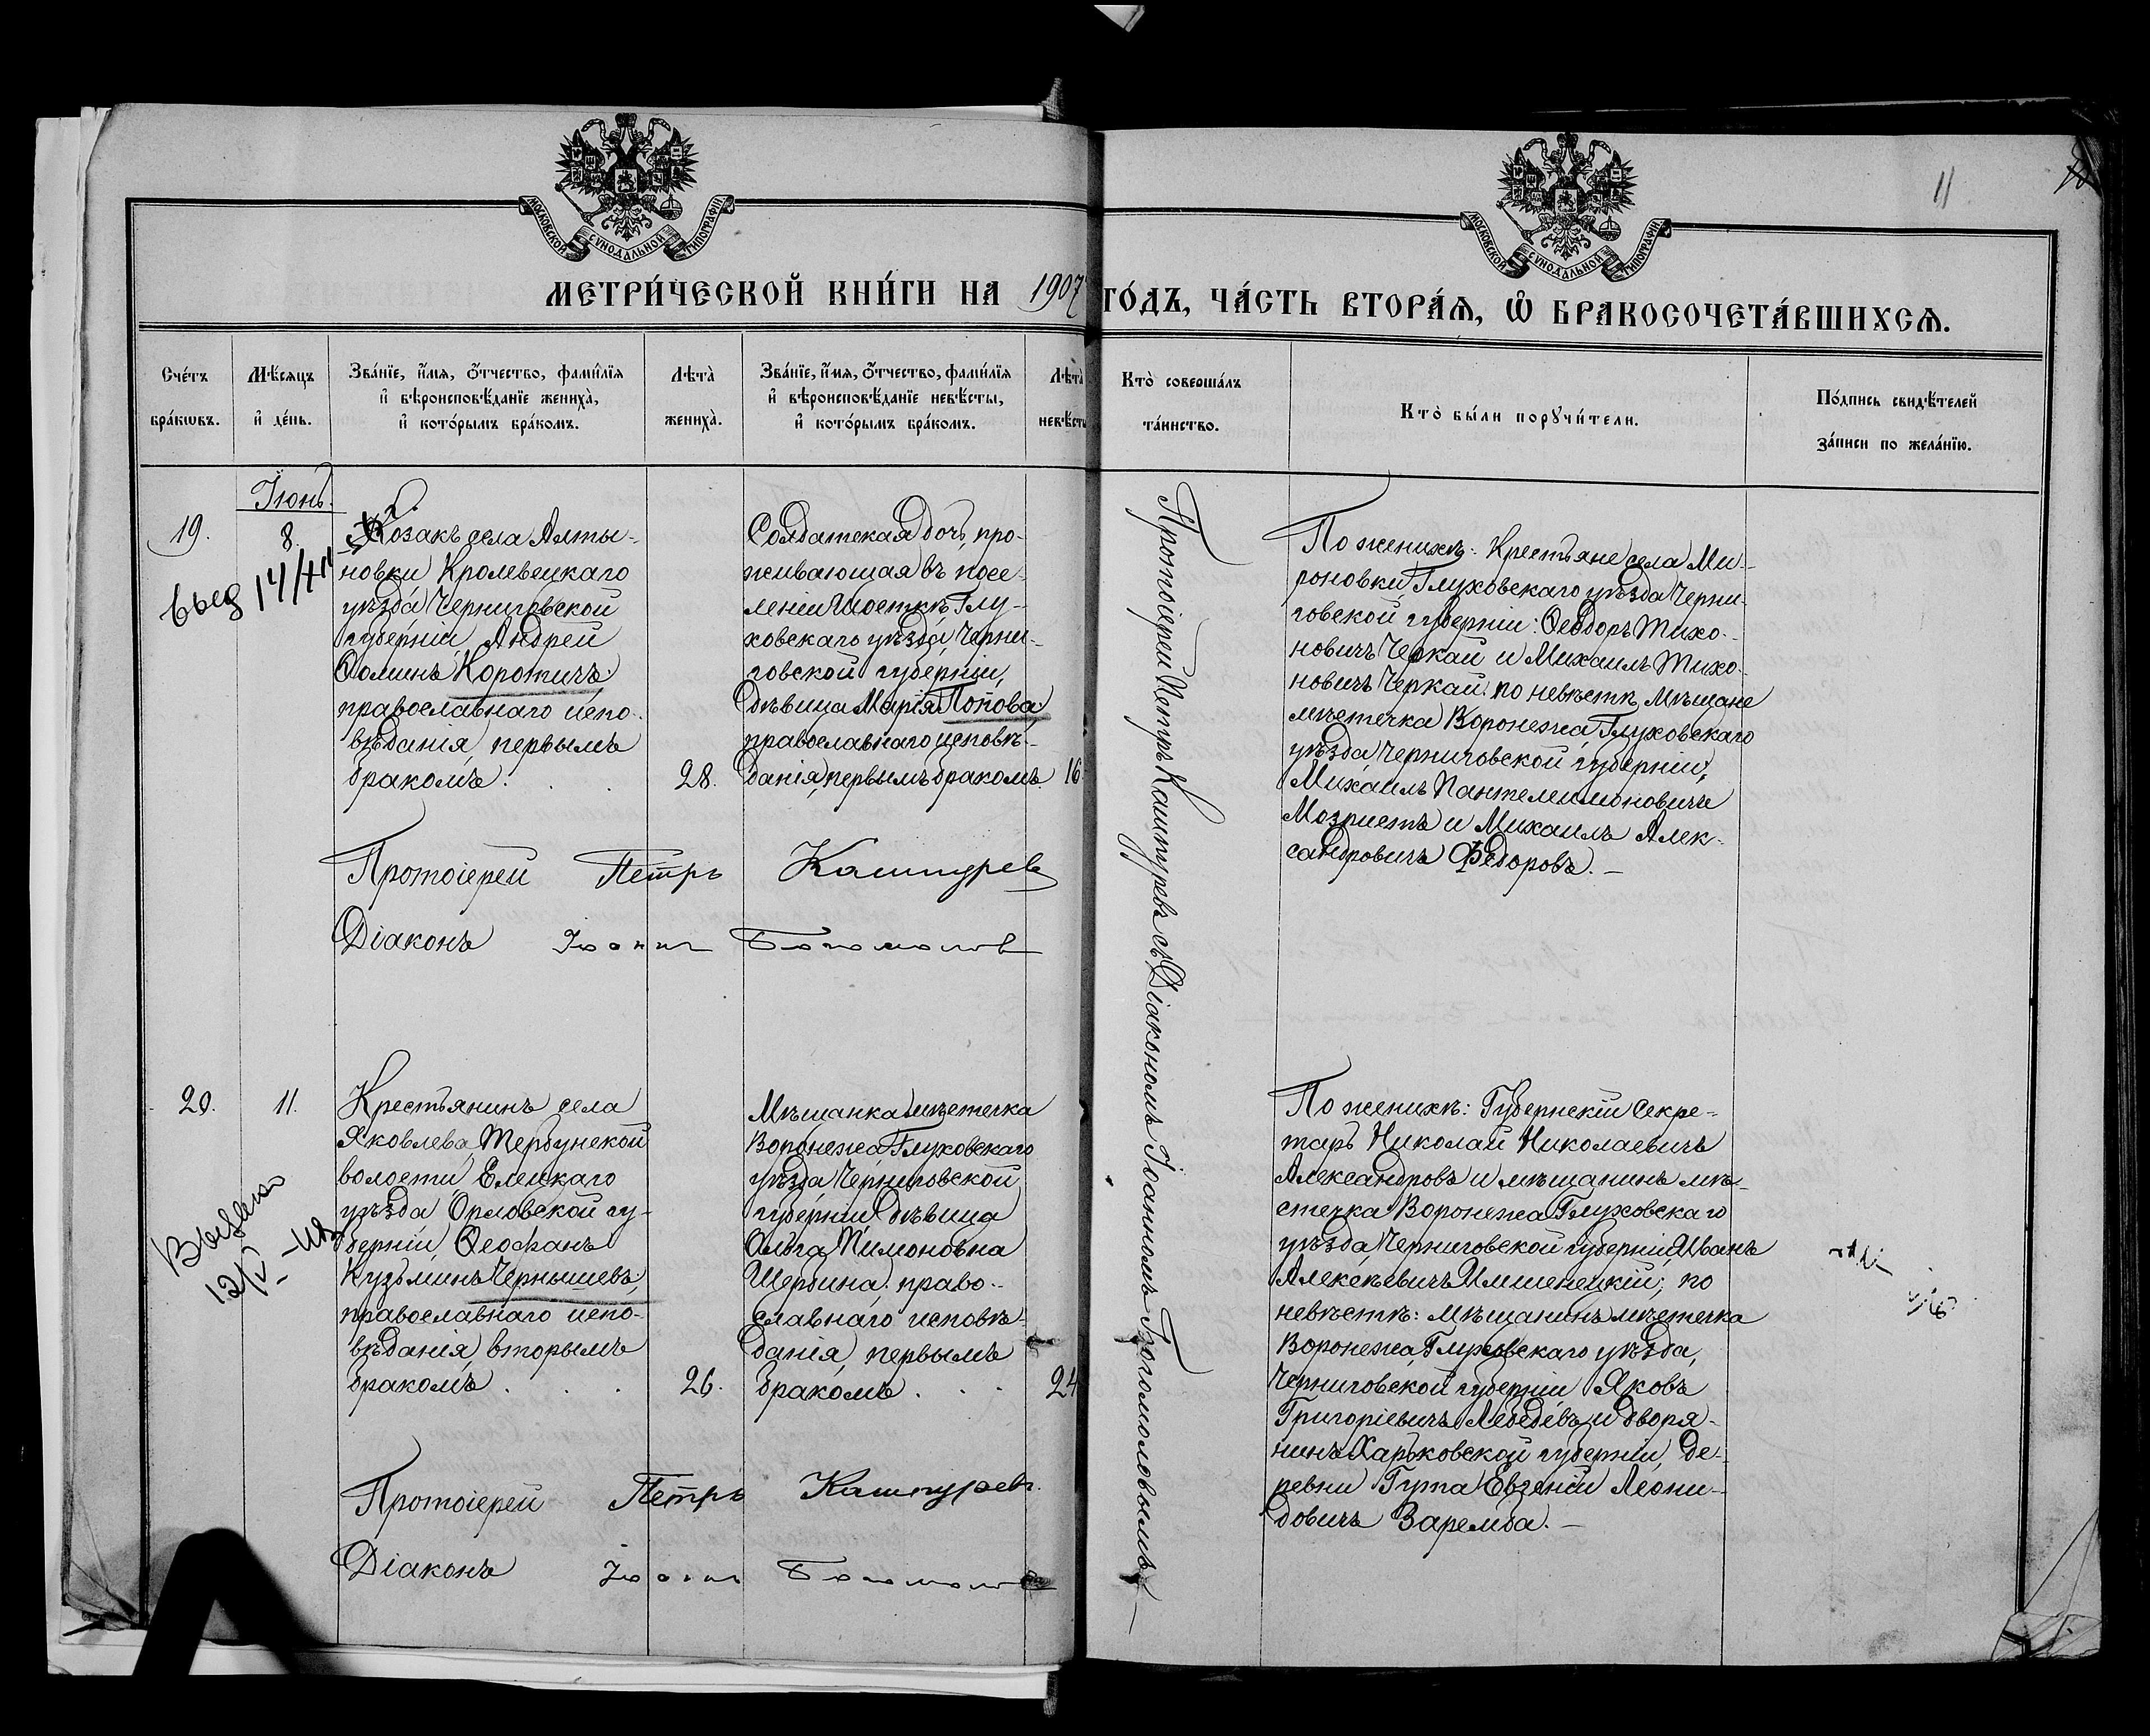 МОСКОВСКОЙ СѴНОДАЛЬНОЙ ТИПОГРАФІИ.
МОСКОВСКОЙ СѴНОДАЛЬНОЙ ТИПОГРАФІИ.
11
МЕТРИ́ЧЕСКОЙ КНИ́ГИ НА 1907 ГО́ДЪ, ЧА́СТЬ ВТОРА́Ѧ, Ѡ҆ БРАКОСОЧЕТА́ВШИХСѦ.
Сче́тъ
бра́кѡвъ.
Мѣ́сяцъ
и҆ де́нь.
Зва́нїе, и҆́мя, о҆́тчество, фами́лїя
и҆ вѣроисповѣ́данїе жениха̀,
и҆ кото́рымъ бра́комъ.
Лѣта̀
жениха̀.
Зва́нїе, и҆́мя, о҆́тчество, фами́лїя
и҆ вѣроисповѣ́данїе невѣ́сты,
и҆ кото́рымъ бра́комъ.
Лѣта̀
невѣ́сты
Кто̀ соверша́лъ
та́инство.
Кто̀ бы́ли порꙋчи́тели.
По́дпись свидѣ́телей
за́писи по жела́нїю.
Іюнь.
19.
8.
выд 14/4
Козакъ села Алты-
новки Кролевецкаго
уѣзда Черниговской
губерніи Андрей
Ѳоминъ Коротичъ
православнаго испо-
вѣданія, первымъ
бракомъ.
28.
Солдатская дочь, про-
живающая въ посе-
леніи Шосткѣ, Глу-
ховскаго уѣзда, Черни-
говской губерніи,
дѣвица Марія Попова
православнаго исповѣ-
данія, первымъ бракомъ.
16
Протоіерей Петръ Каштуревъ съ Діакономъ Іоанномъ Богомоловымъ
По женихѣ: Крестьяне села Ми-
роновки, Глуховскаго уѣзда Черни-
говской губерніи: Ѳеодоръ Тихо-
новичъ Черкай и Михаилъ Тихо-
новичъ Черкай: по невѣстѣ, мѣщане
мѣстечка Воронежа, Глуховскаго
уѣзда, Черниговской губерніи,
Михаилъ Пантелеимоновичъ
и Михаилъ Алек-
сандровичъ Федоровъ. –
Протоіерей Петръ Каштурев
Діаконъ Іоаннъ Богомолов
20.
11.
Выдано
12/V
Крестьянинъ села
Яковлева, Тербунской
волости, Елецкаго
уѣзда Орловской гу-
берніи, Ѳеофанъ
Кузьминъ Чернышевъ,
православнаго испо-
вѣданія, вторымъ
бракомъ
26.
Мѣщанка мѣстечка
Воронежа, Глуховскаго
уѣзда, Черниговской
губерніи, дѣвица
Ольга Пимоновна
Щербина, право-
славнаго исповѣ-
данія, первымъ
бракомъ
24
По женихѣ: Губернскій Секре-
тарь Николай Николаевичъ
Александровъ и мѣщанинъ мѣ-
стечка Воронежа Глуховскаго
уѣзда, Черниговской губерніи Иванъ
Алексѣевичъ Имшенецкій; по
невѣстѣ: мѣщанинъ мѣстечка
Воронежа, Глуховскаго уѣзда,
Черниговской губерніи Яковъ
Григоріевичъ Лебедевъ и дворя-
нинъ Харьковской губерніи, де-
ревни Гута Евгеній Леони-
довичъ Заремба. –
Протоіерей Петръ Каштуревъ.
Діаконъ Іоаннъ Богомолов